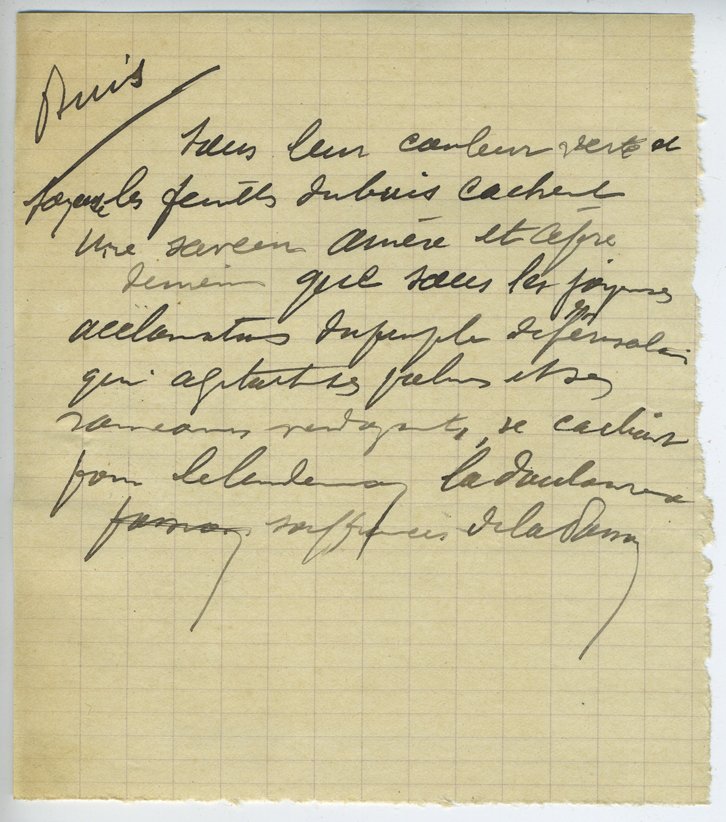 Buis
Sous leur couleur verte et
joyeuse les feuilles du buis cachent
Une saveur amère et âpre
que sous les joyeuses
acclamations du peuple de Jérusalem
qui agitait ses palmes et ses
rameaux verdoyants, se cachait
pour le lendemain la douloureuse
passion souffrances de la Passion